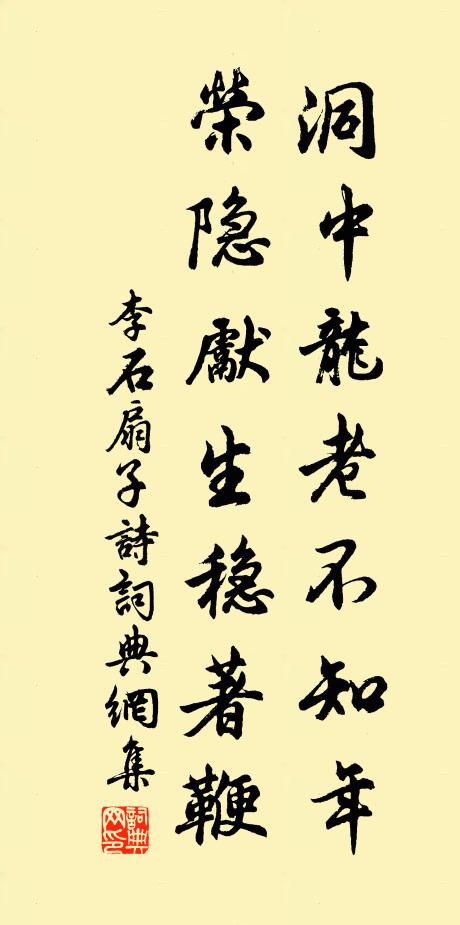 洞中龍老不知年
榮隐獻生穏著鞭
李石扇子詩詞典網集
詞典網印